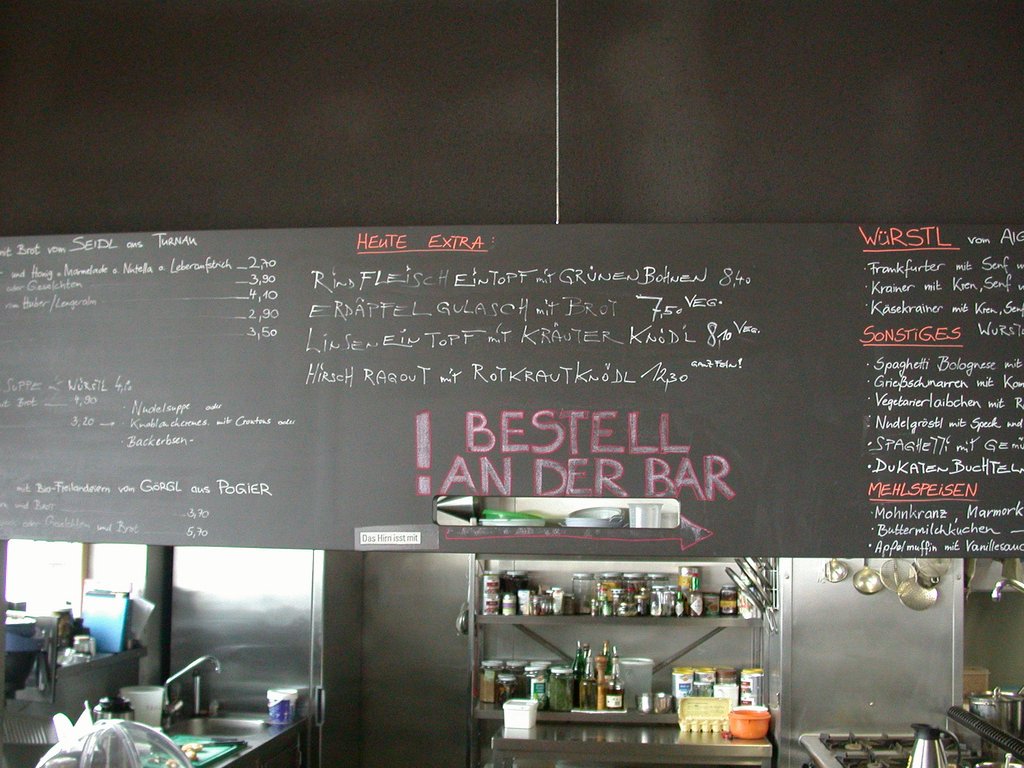 mit Brot vom SEIDL aus TURNAU
und Honig o. Marmelade o. Nutella o. Leberaufstrich 2,70
oder Geselchten 3,90
vom Huber/Lengeralm 4,10
2,90
3,50
SUPPE WÜRSTL 4,10
mit Brot 4,90
3,20 → · Nudelsuppe oder
· Knoblauchcremes. mit Croutons oder
Backerbsen -
mit Bio-Freilandeiern von GÖRGL aus POGIER
und Brot 3,70
oder Geselchten und Brot 5,70
HEUTE EXTRA:
RINDFLEISCH EINTOPF mit GRÜNEN BOHNEN 8,40
ERDÄPFEL GULASCH mit BROT 7,50 VEG.
LINSENEINTOPF mit KRÄUTER KNÖDL 8,10 VEG.
HIRSCH RAGOUT mit ROTKRAUTKNÖDL 12,30 ganz fein!
! BESTELL
AN DER BAR
Das Hirn isst mit
WÜRSTL vom AIG
· Frankfurter mit Senf
· Krainer mit Kren, Senf
· Käsekrainer mit Kren, Senf
SONSTIGES WURST
· Spaghetti Bolognese mit
· Grießschmarren mit Kom
· Vegetarierlaibchen mit R
· Nudelgröstl mit Speck und
· SPAGHETTI mit GEMÜ
· DUKATENBUCHTELN
MEHLSPEISEN
· Mohnkranz, Marmork
· Buttermilchkuchen
· Apfelmuffin mit Vanillesauc